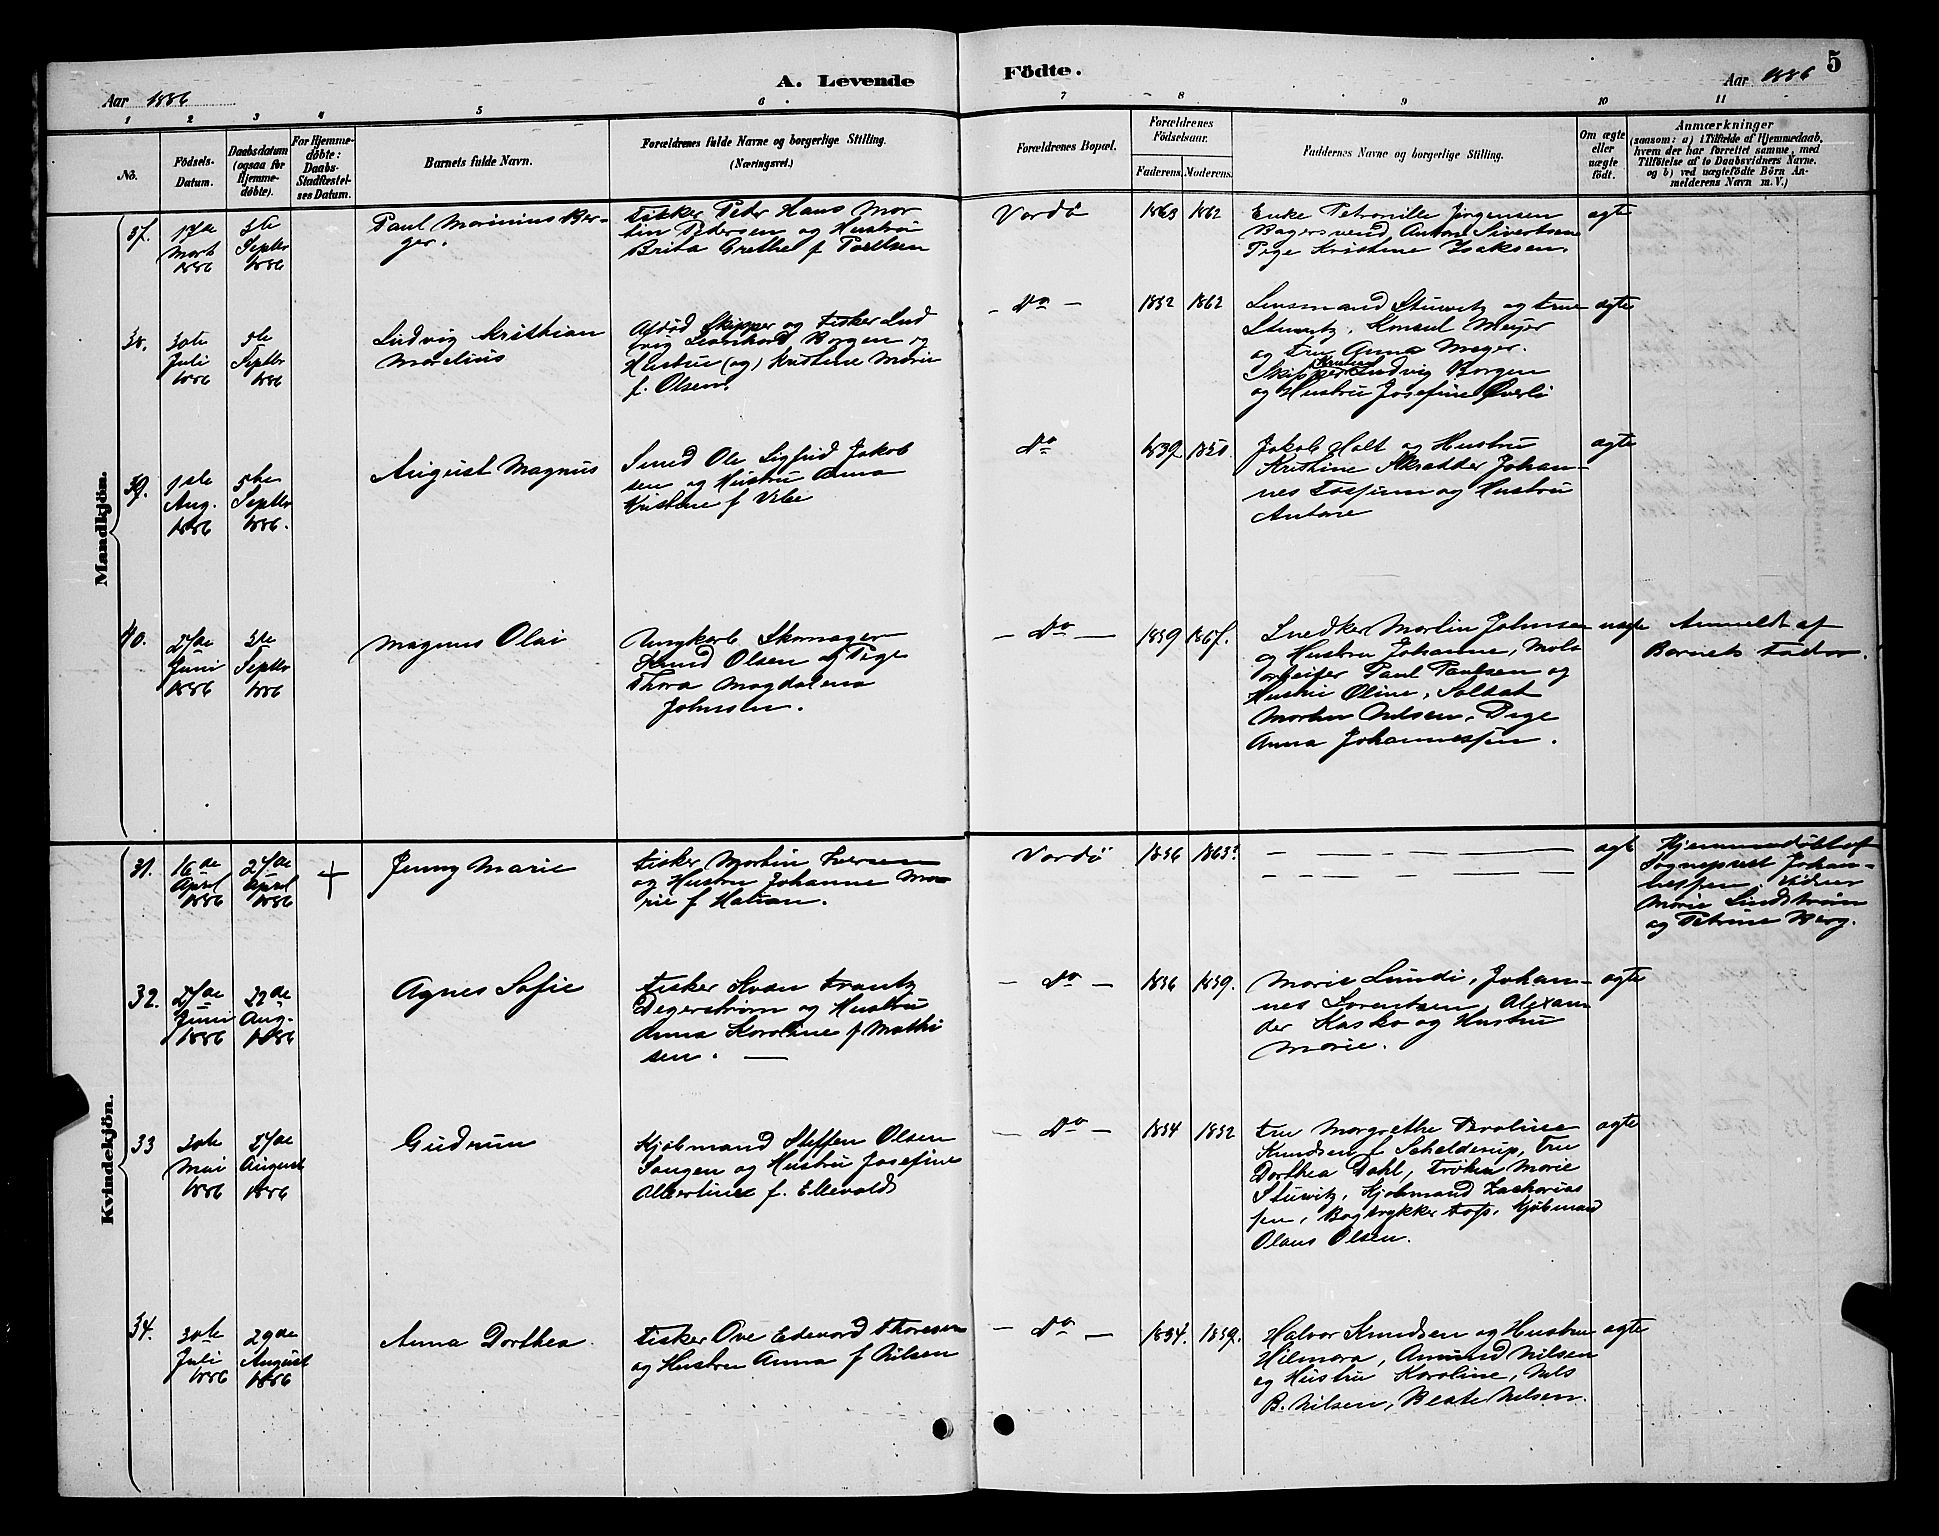 A. Levende Födte.
5
Aar 1886
Aar 1886
1 2 3 4 5 6 7 8 9 10 11
No.
Födsels-
Datum.
Daabsdatum
(ogsaa for
Hjemme-
døbte).
For Hjemme-
døbte:
Daabs-
Stadfæstel-
ses Datum.
Barnets fulde Navn.
Forældrenes fulde Navne og borgerlige Stilling.
(Næringsvei.)
Forældrenes Bopæl.
Forældrenes
Födselsaar.
Faderens. Moderens.
Faddernes Navne og borgerlige Stilling.
Om ægte
eller
uægte
födt.
Anmærkninger
(saasom: a) i Tilfælde af Hjemmedaab,
hvem der har forrettet samme, med
Tilföielse af to Daabsvidners Navne,
og b) ved uægtefödte Börn An-
melderens Navn m. V.)
Mandkjön.
37.
17de
Marts
1886
5te
Septbr
1886
Paul Marinius Ber-
ger.
Fisker Peder Hans Mor
tin Pedersen og Hustru
Brita Grethe f Poulsen
Vardö
1863 1862
Enke Petronille Jörgensen
Bagersvend Anton Sivertsen
Pige Kristine Isaksen
ægte
38.
30te
Juli
1886
5te
Septbr
1886
Ludvig Kristian
Marelius
Afdød Skipper og Fisker Lud
vig Borgen og
Hustru (og) Kristine Marie
f. Olsen
- Do -
1852 1862
Lensmand Stuwitz og Frue
Stuwitz, Konsul Meyer
og Fru Anna Meyer.
Skipper Ludvig Borgen
og Hustru Josefine Överli
ægte
39.
1ste
Aug.
1886
5te
Septbr
1886.
August Magnus
Smed Ole Sigfrid Jakob
sen og Hustru Anna
Kristine f Vibe
Do
1839 1850
Jakob Holt og Hustru
Kristine Skrædder Johan-
nes Fossum og Hustru
Antone
ægte
40.
27de
Juni
1886
5te
Septbr
1886
Magnus Olai
Ungkarl Skomager
Knud Olsen og Pige
Thora Magdalena
Johnsen.
- Do -
1859
Snedker Martin Johnsen
og Hustru Johanne,
Paul Paulsen og
Hustru Oline, Soldat
Morten Nilsen, Pige
Anna Johannessen.
uægte
Anmeldt af
Barnets Fader.
Kvindekjön.
31.
16de
April
1886
27de
April
1886
+
Jenny Marie
Fisker Martin Iversen
og Hustru Johanne Ma-
rie f Hatian.
Vardö
1856 1863?
- - - - -
- - - - -
ægte
Hjemmedöbt af
Sogneprest Johan-
nessen Vidner
Marie Lindström
og Petrine Berg.
32.
27de
Juni
1886
22de
Aug.
1886
Agnes Sofie
Fisker Frantz
Degerström og Hustru
Anna Karoline f Mathi
sen. -
- Do -
1856 1859.
Marie Lundi, Johan-
nes Lorentsen, Alexan
der Kasko og Hustru
Marie.
ægte
33
30te
Mai
1886
27de
August
1886
Gudrun
Kjöbmand Steffen Olsen
Sangen og Hustru Josefine
Albertine f. Ellevold
- Do -
1854 1852
Fru Margrethe Paroline
Knudsen f Schelderup, Fru
Dorthea Dahl, Fröken Marie
Stuwitz, Kjöbmand Zacharias
sen, Bogtrykker Foss, Kjöbmand
Olaus Olsen.
ægte
34.
30te
Juli
1886
29de
August
1886
Anna Dorthea
Fisker Ove Edevard Thoresen
og Hustru Anna f Nilsen
- Do -
1854. 1859.
Halvor Knudsen og Hustru
Hilmara, Amund Nilsen
og Hustru Karoline, Nils
B. Nilsen, Beate Nilsen.
ægte